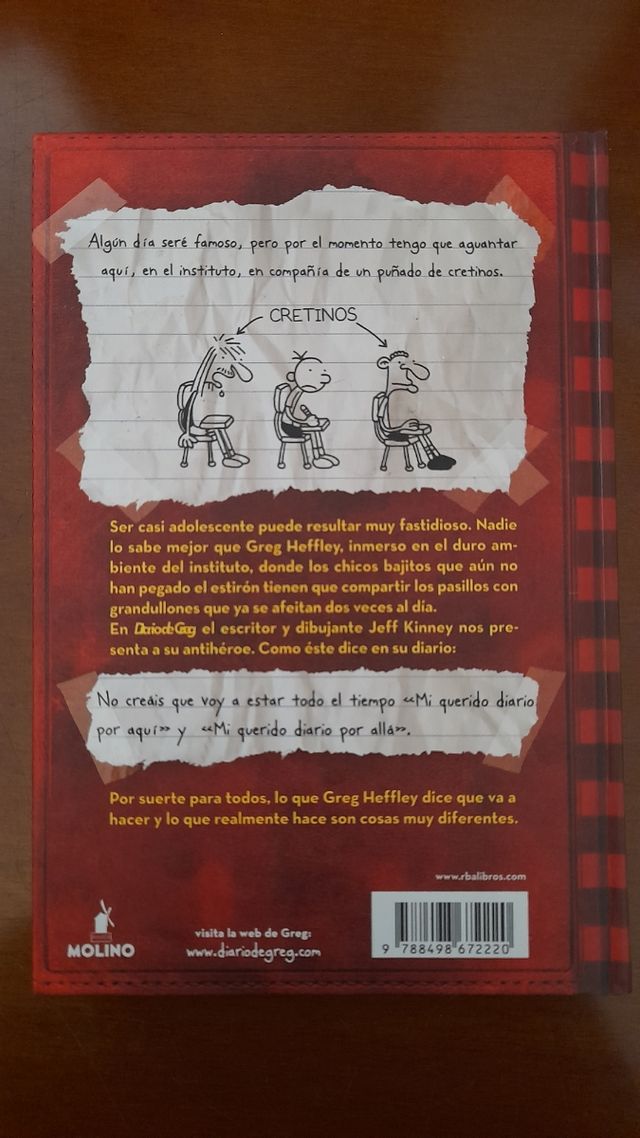 Algún día seré famoso, pero por el momento tengo que aguantar
aquí, en el instituto, en compañía de un puñado de cretinos.
CRETINOS
Ser casi adolescente puede resultar muy fastidioso. Nadie
lo sabe mejor que Greg Heffley, inmerso en el duro am-
biente del instituto, donde los chicos bajitos que aún no
han pegado el estirón tienen que compartir los pasillos con
grandullones que ya se afeitan dos veces al día.
En Diario de Greg el escritor y dibujante Jeff Kinney nos pre-
senta a su antihéroe. Como éste dice en su diario:
No creáis que voy a estar todo el tiempo «Mi querido diario
por aquí» y «Mi querido diario por allá».
Por suerte para todos, lo que Greg Heffley dice que va a
hacer y lo que realmente hace son cosas muy diferentes.
www.rbalibros.com
MOLINO
visita la web de Greg:
www.diariodegreg.com
9 788498 672220